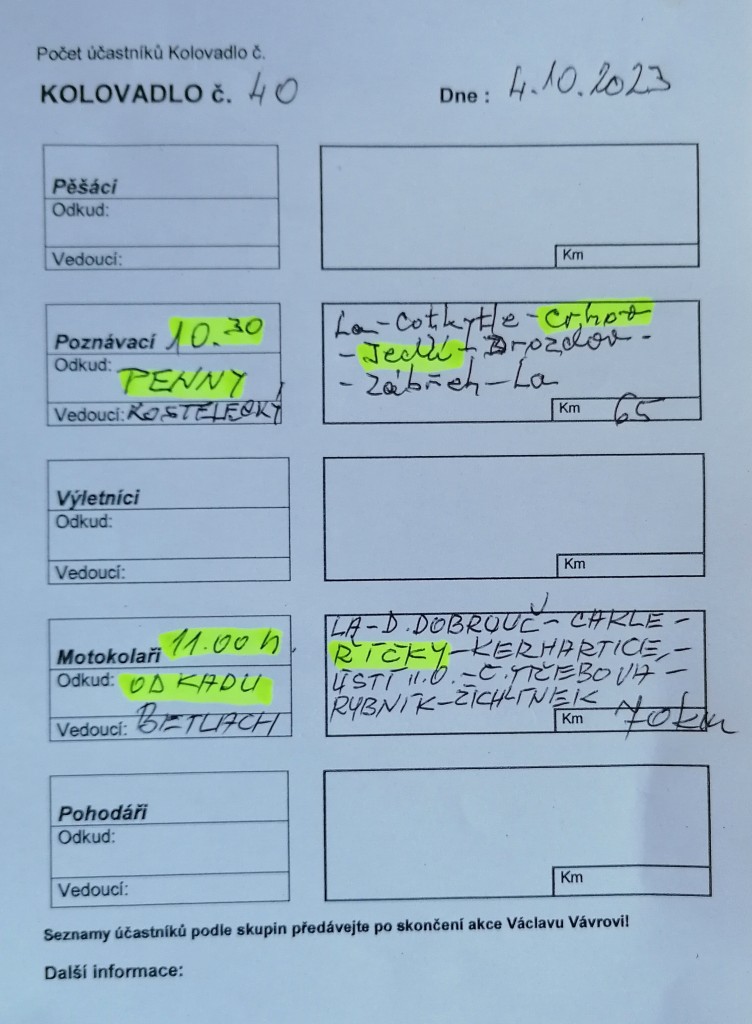 Počet účastníků Kolovadlo č.
KOLOVADLO č. 40 Dne : 4.10.2023
Pěšáci
Odkud:
Vedoucí:
Km
Poznávací 10.30
Odkud: PENNY
Vedoucí: KOSTELECKÝ
La - Cotkytle - Crhov
- Jedlí - Drozdov -
- Zábřeh - La
Km 65
Výletníci
Odkud:
Vedoucí:
Km
Motokolaři 11.00 h.
Odkud: OD KADU
Vedoucí: BETLACH
LA - D. DOBROUČ - CAKLE -
ŘÍČKY - KERHARTICE, -
ÚSTÍ n.O. - Č. TŘEBOVA -
RYBNÍK - ŽICHLÍNEK
Km 70 km
Pohodáři
Odkud:
Vedoucí:
Km
Seznamy účastníků podle skupin předávejte po skončení akce Václavu Vávrovi!
Další informace: